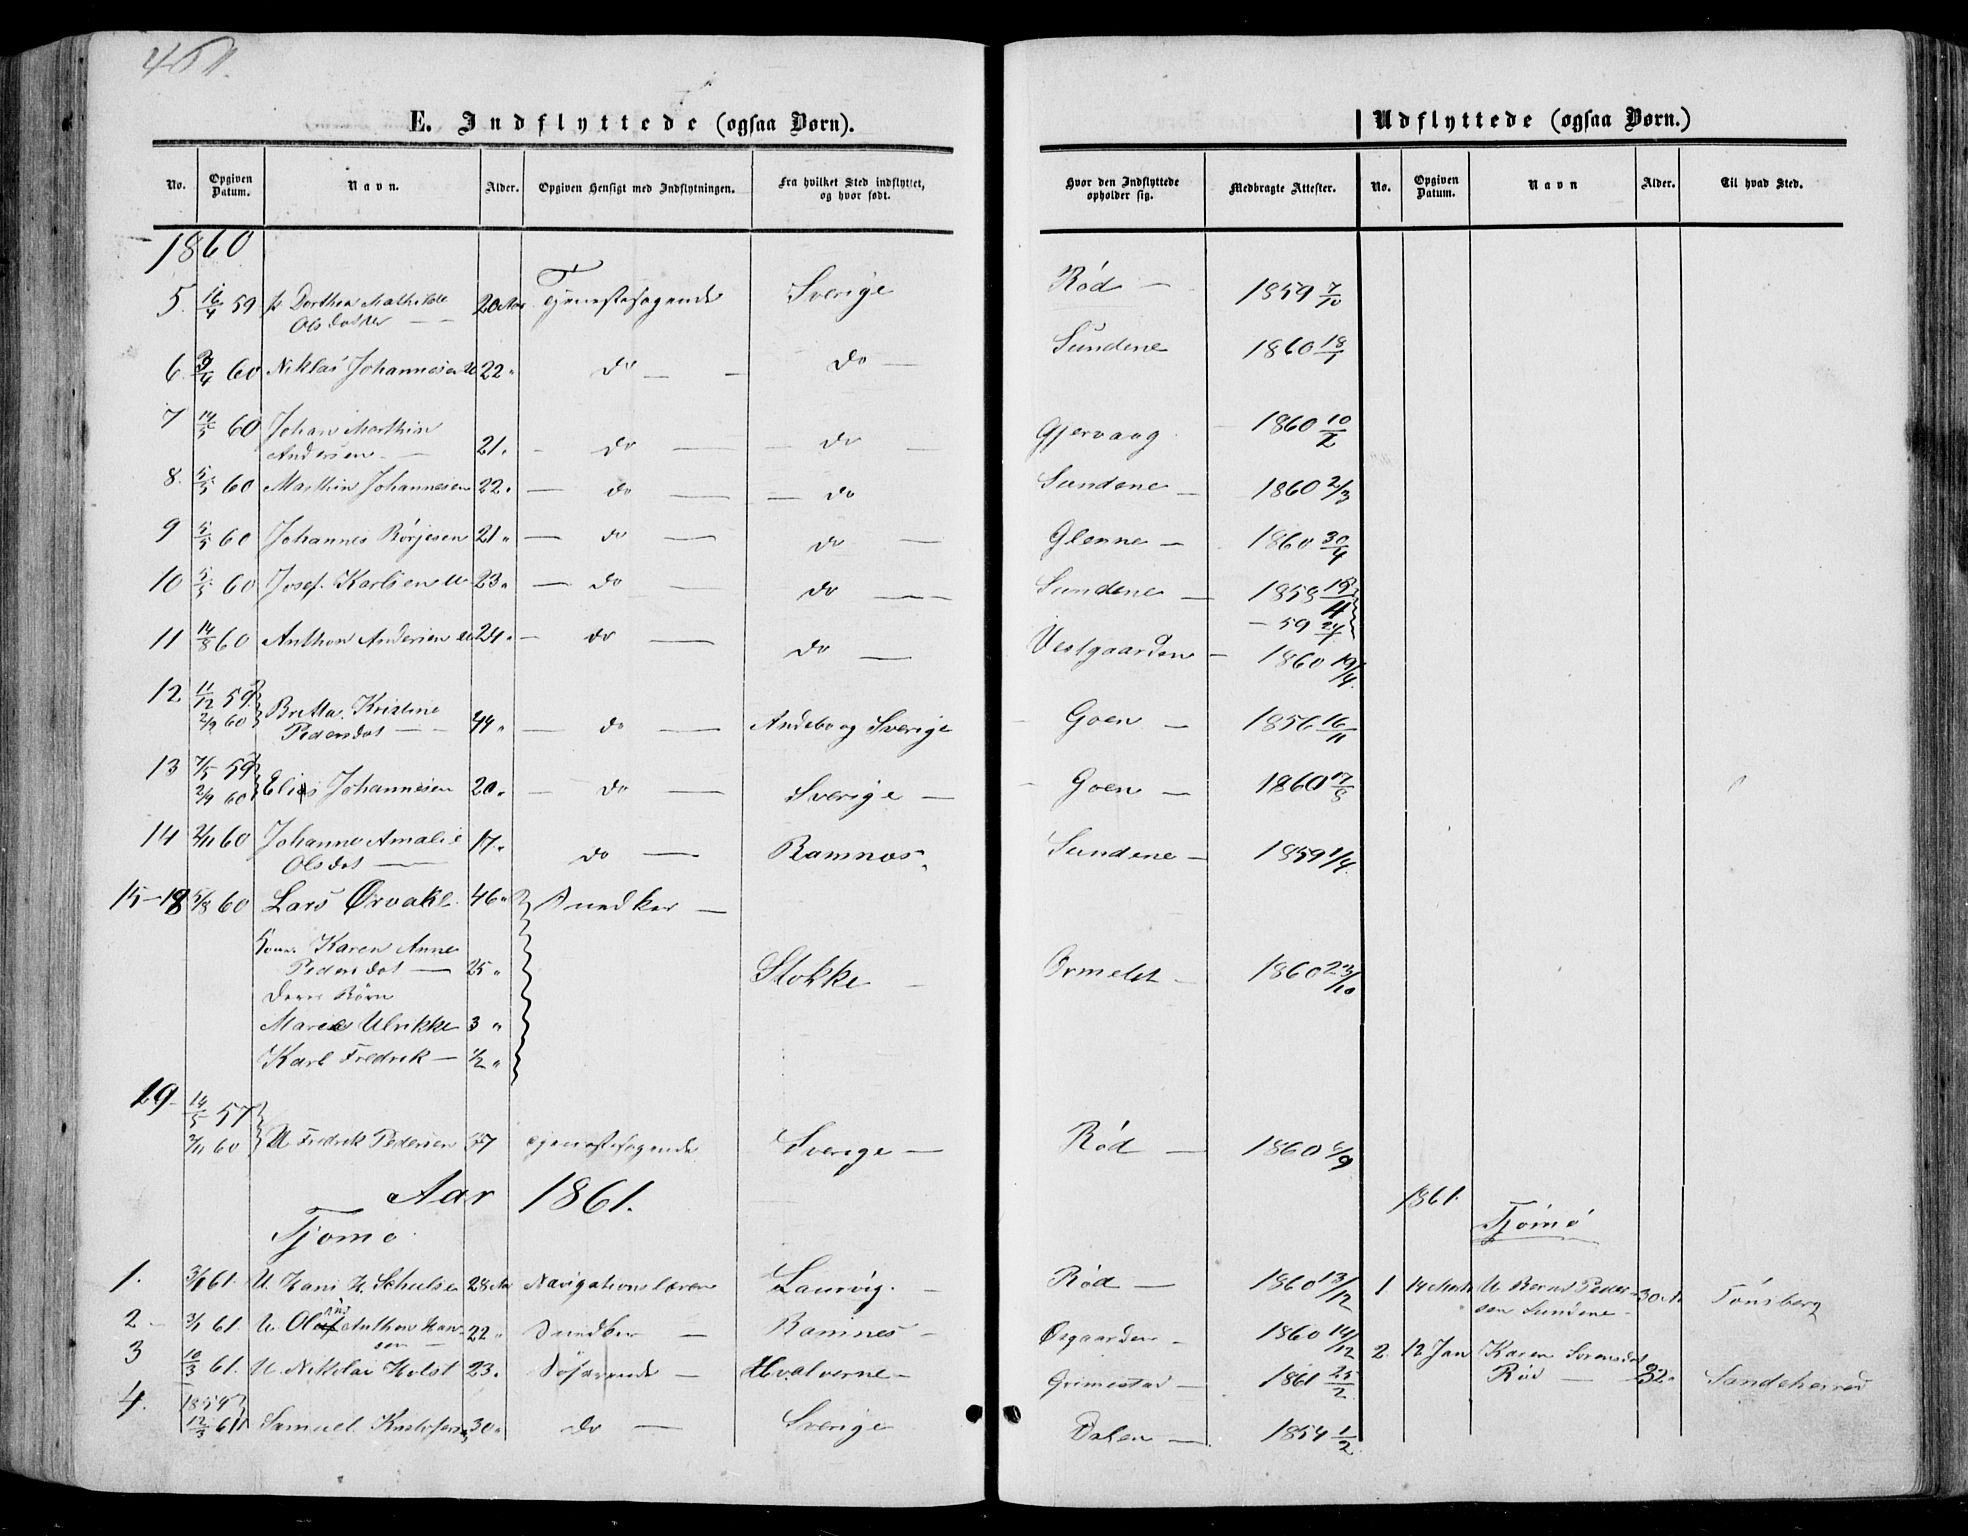 461.
E. Indflyttede (ogsaa Børn).
No. Opgiven Datum. Navn. Alder. Opgiven Hensigt med Indflytningen. Fra hvilket Sted indflyttet, og hvor født.
Hvor den Indflyttede opholder sig. Medbragte Attester.
1860
5. 16/4 59 Dorthea Mathilde Olsdatter 20 Aar Tjenestesøgende Sverige Rød 1859 7/10
6. 60 Niklas Johannesen 22 do do Sundene 1860 18/1
7 14/5 60 Johan Marthin Andersen 21 do do Gjervaag 1860 10/2
8. 5/5 60 Marthin Johannesen 22 do do Sundene 1860 2/3
9 5/5 60 Johannes Børjesen 21 do do Glenne 1860 30/4
10 5/5 60 Josef Karlsen 23 do do Sundene 1858 18/4 59 24/
11 14/8 60 Anthon Andersen 24 do do Vestgaarden 1860 19/4
12 11/12 59 2/9 60 Britta Kristine Pedersdot 44 do Andebo og Sverige Goen 1856 16/11
13 7/5 59 2/9 60 Elias Johannesen 20 do Sverige Goen 1860 17/8
14 2/11 60 Johanne Amalie Olsdot 17 do Ramnæs Sundene 1859 1/4
15-18 5/8 60 Lars Ørvakl 46 Snedker
Kone Karen Anne Pedersdot 25 Stokke Ormelet 1860 23/10
Deres Børn
Maria Ulrikke 3
Karl Fredrik 1/2
19 14/5 57 2/11 60 U Fredrik Pedersen 37 Tjenestesøgende Sverige Rød 1860 6/9
Aar 1861.
Tjømø
1. 3/1 61. U. Hans H. Schulse 28 Aar Navigationslærer Laurvig. Rød 1860 13/12
2 3/1 61. U. Ole Anthon Hansen 22 Snedker Ramnes Øsgaarden 1860 14/12
3 10/3 61. U. Nikolai Holst 23. Søfarende Hvalverne Grimestad 1861 25/2
4. 1859 12/3 61 Samuel Kristofersen 30 do Sverige Dalen 1854 1/2
Udflyttede (ogsaa Børn.)
No. Opgiven Datum. Navn Alder. Til hvad Sted.
1861.
Tjømø
1 14 Marts U Bernt Pedersen Sundene 30 Tönsberg
2. 12 Jan Karen Sorensdot Rød 32 Sandeherred